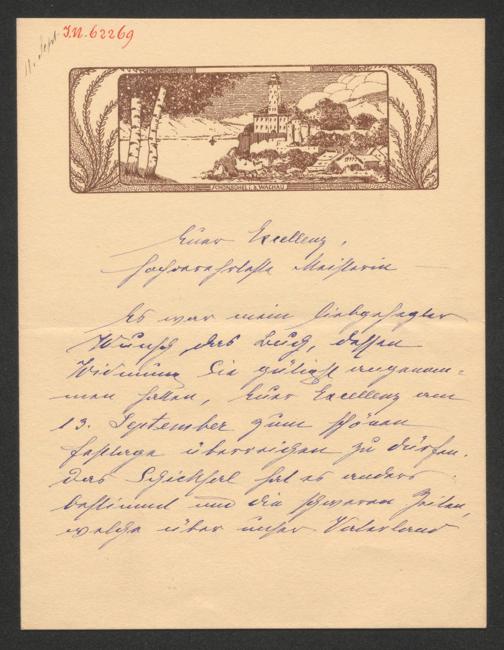 11. Sept.
I.N. 62269
SCHÖNBÜHEL I. D. WACHAU
Euer Excellenz,
hochverehrteste Meisterin
Es war mein liebgehegter
Wunsch das Buch, dessen
Widmung Sie gütigst angenom-
men hatten, Euer Excellenz am
13. September zum schönen
Festtage überreichen zu dürfen.
Das Schicksal hat es anders
bestimmt und die schweren Zeiten,
welche über unser Vaterland